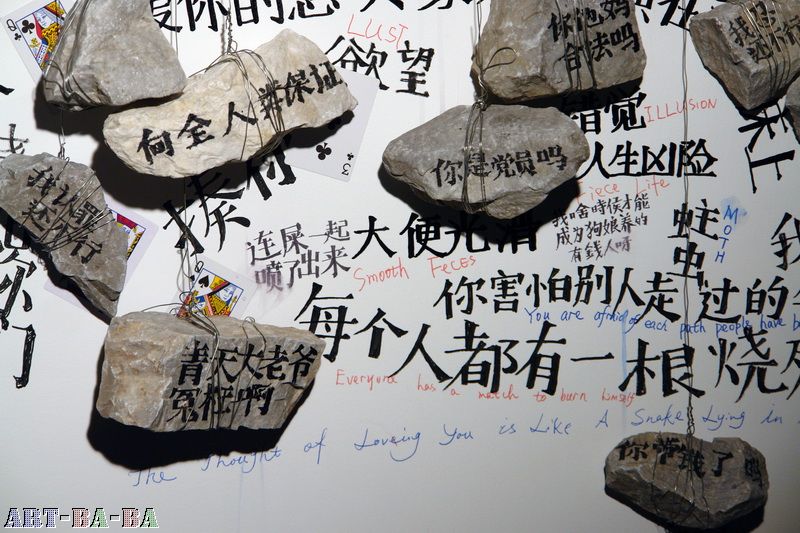 LUST
欲望
你他妈
合法吗
何全人类保证
错觉
ILLUSION
你是党员吗
人生凶险
Fiece Life
我认罪
还不行
我啥時侯才能
成为狗娘养的
有钱人呀
蛀虫
MOTH
连屎一起
喷了出来
大便光滑
Smooth Feces
你害怕别人走过的
You are afraid of each path people have
每个人都有一根烧
Everyone has a match to burn himself
青天大老爷
冤枉啊
The Thought of Loving You is Like A Snake Lying in
ART-BA-BA